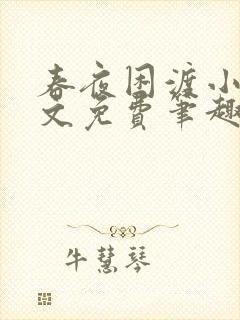 春夜困渡小
文免费筆趣
牛慧琴